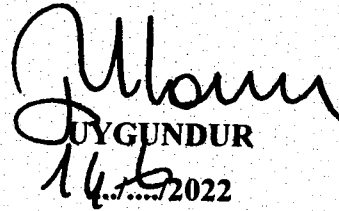 UYGUNDUR
14../6../2022